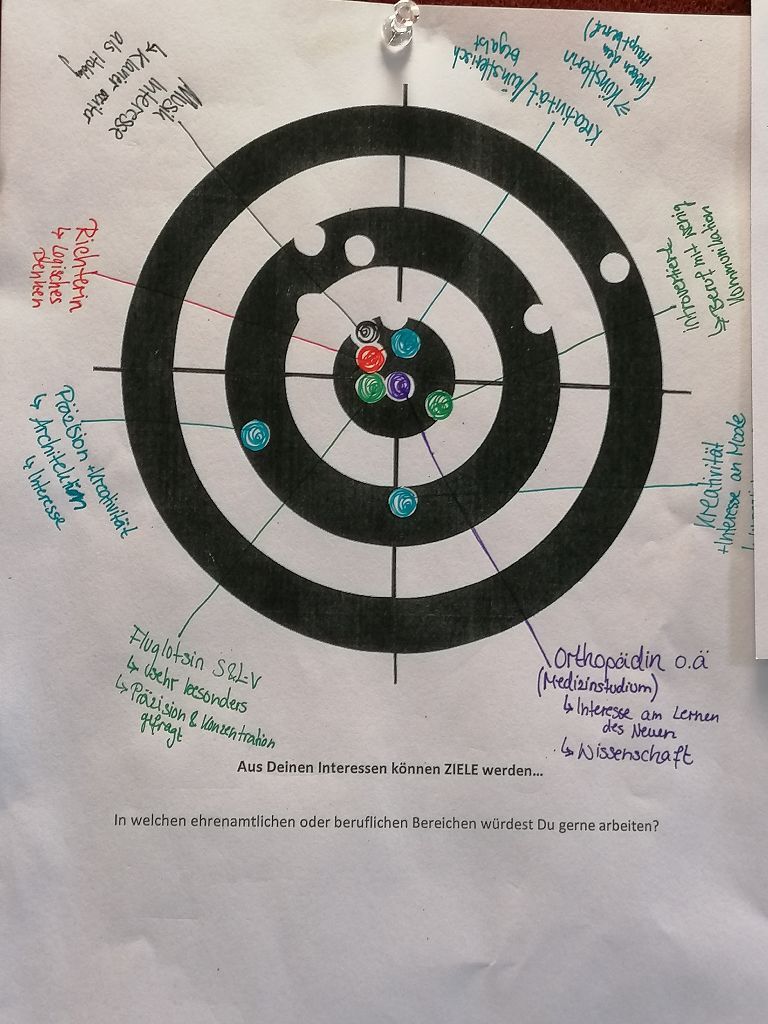 Musik
Interesse
↳ Klavier weiter
als Hobby
Kreativität/künstlerisch
begabt
→ Künstlerin
(neben dem
Hauptberuf)
Introvertiert
↳ Beruf mit wenig
Kommunikation
Richterin
↳ Logisches
Denken
Präzision + Kreativität
↳ Architektin
↳ Interesse
Kreativität
+Interesse an Mode
Fluglotsin
↳ sehr besonders
↳ Präzision & Konzentration
gefragt
Orthopädin o.ä
(Medizinstudium)
↳ Interesse am Lernen
des Neuen
↳ Wissenschaft
Aus Deinen Interessen können ZIELE werden...
In welchen ehrenamtlichen oder beruflichen Bereichen würdest Du gerne arbeiten?